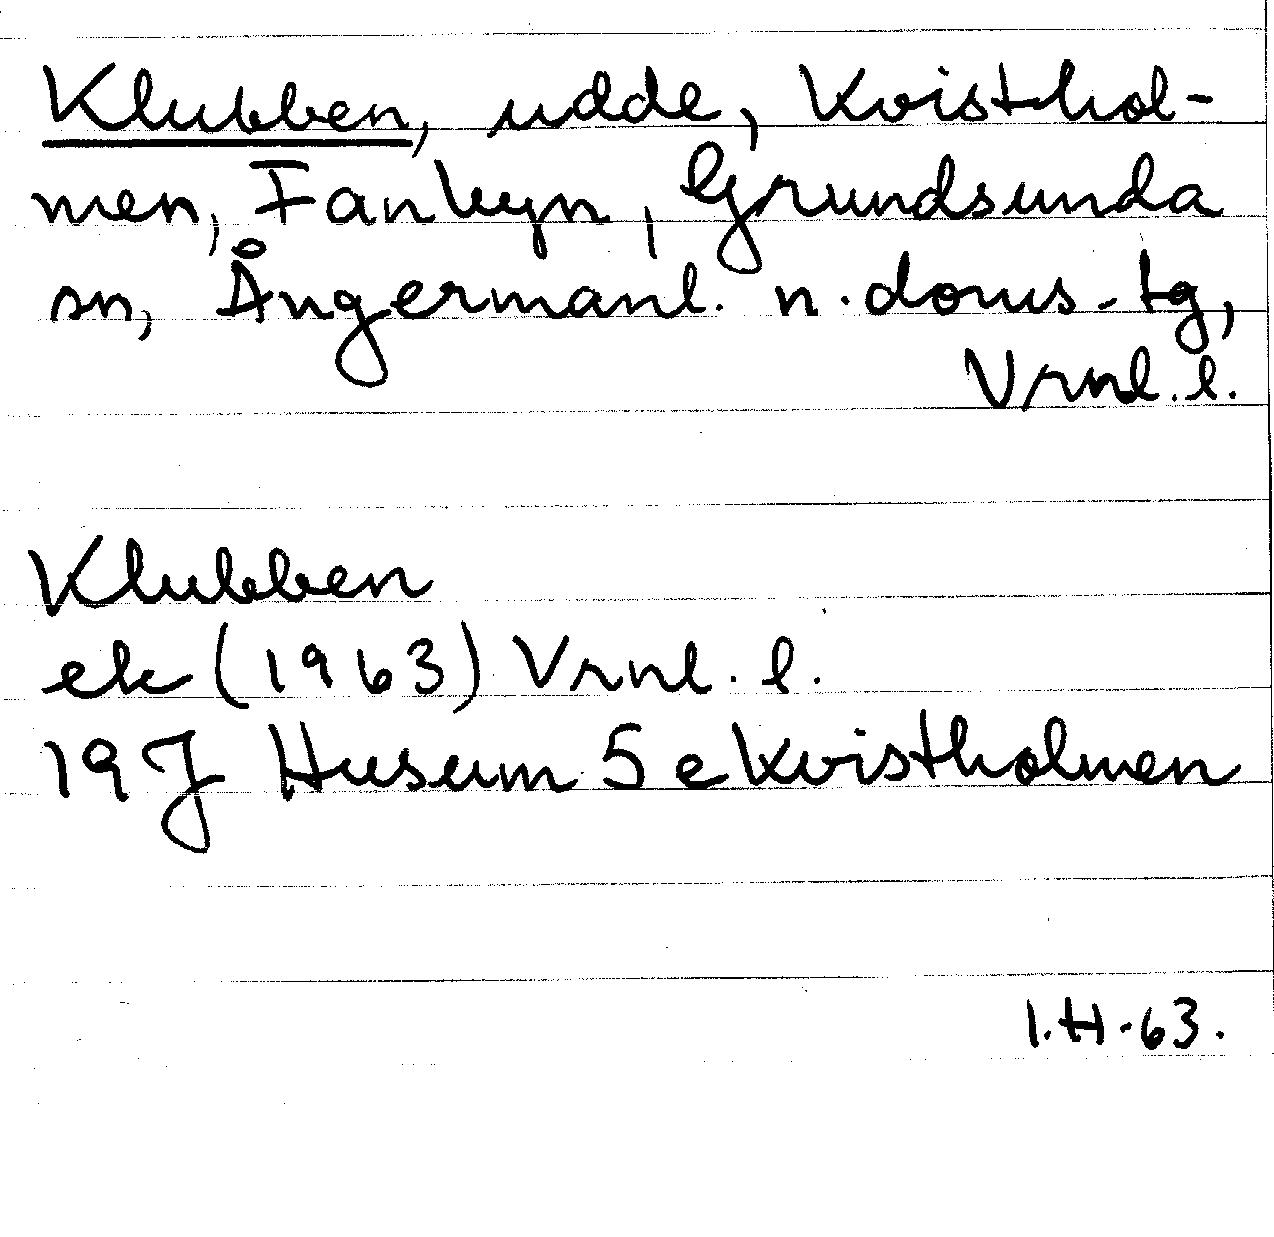 Klubben, udde, Kvisthol-
men, Fanbyn, Grundsunda
sn, Ångermanl. n. doms-tg,
Vrnl. l.
Klubben
ek (1963) Vrnl. l.
19 J Husum 5 e Kvistholmen
I. H. 63.